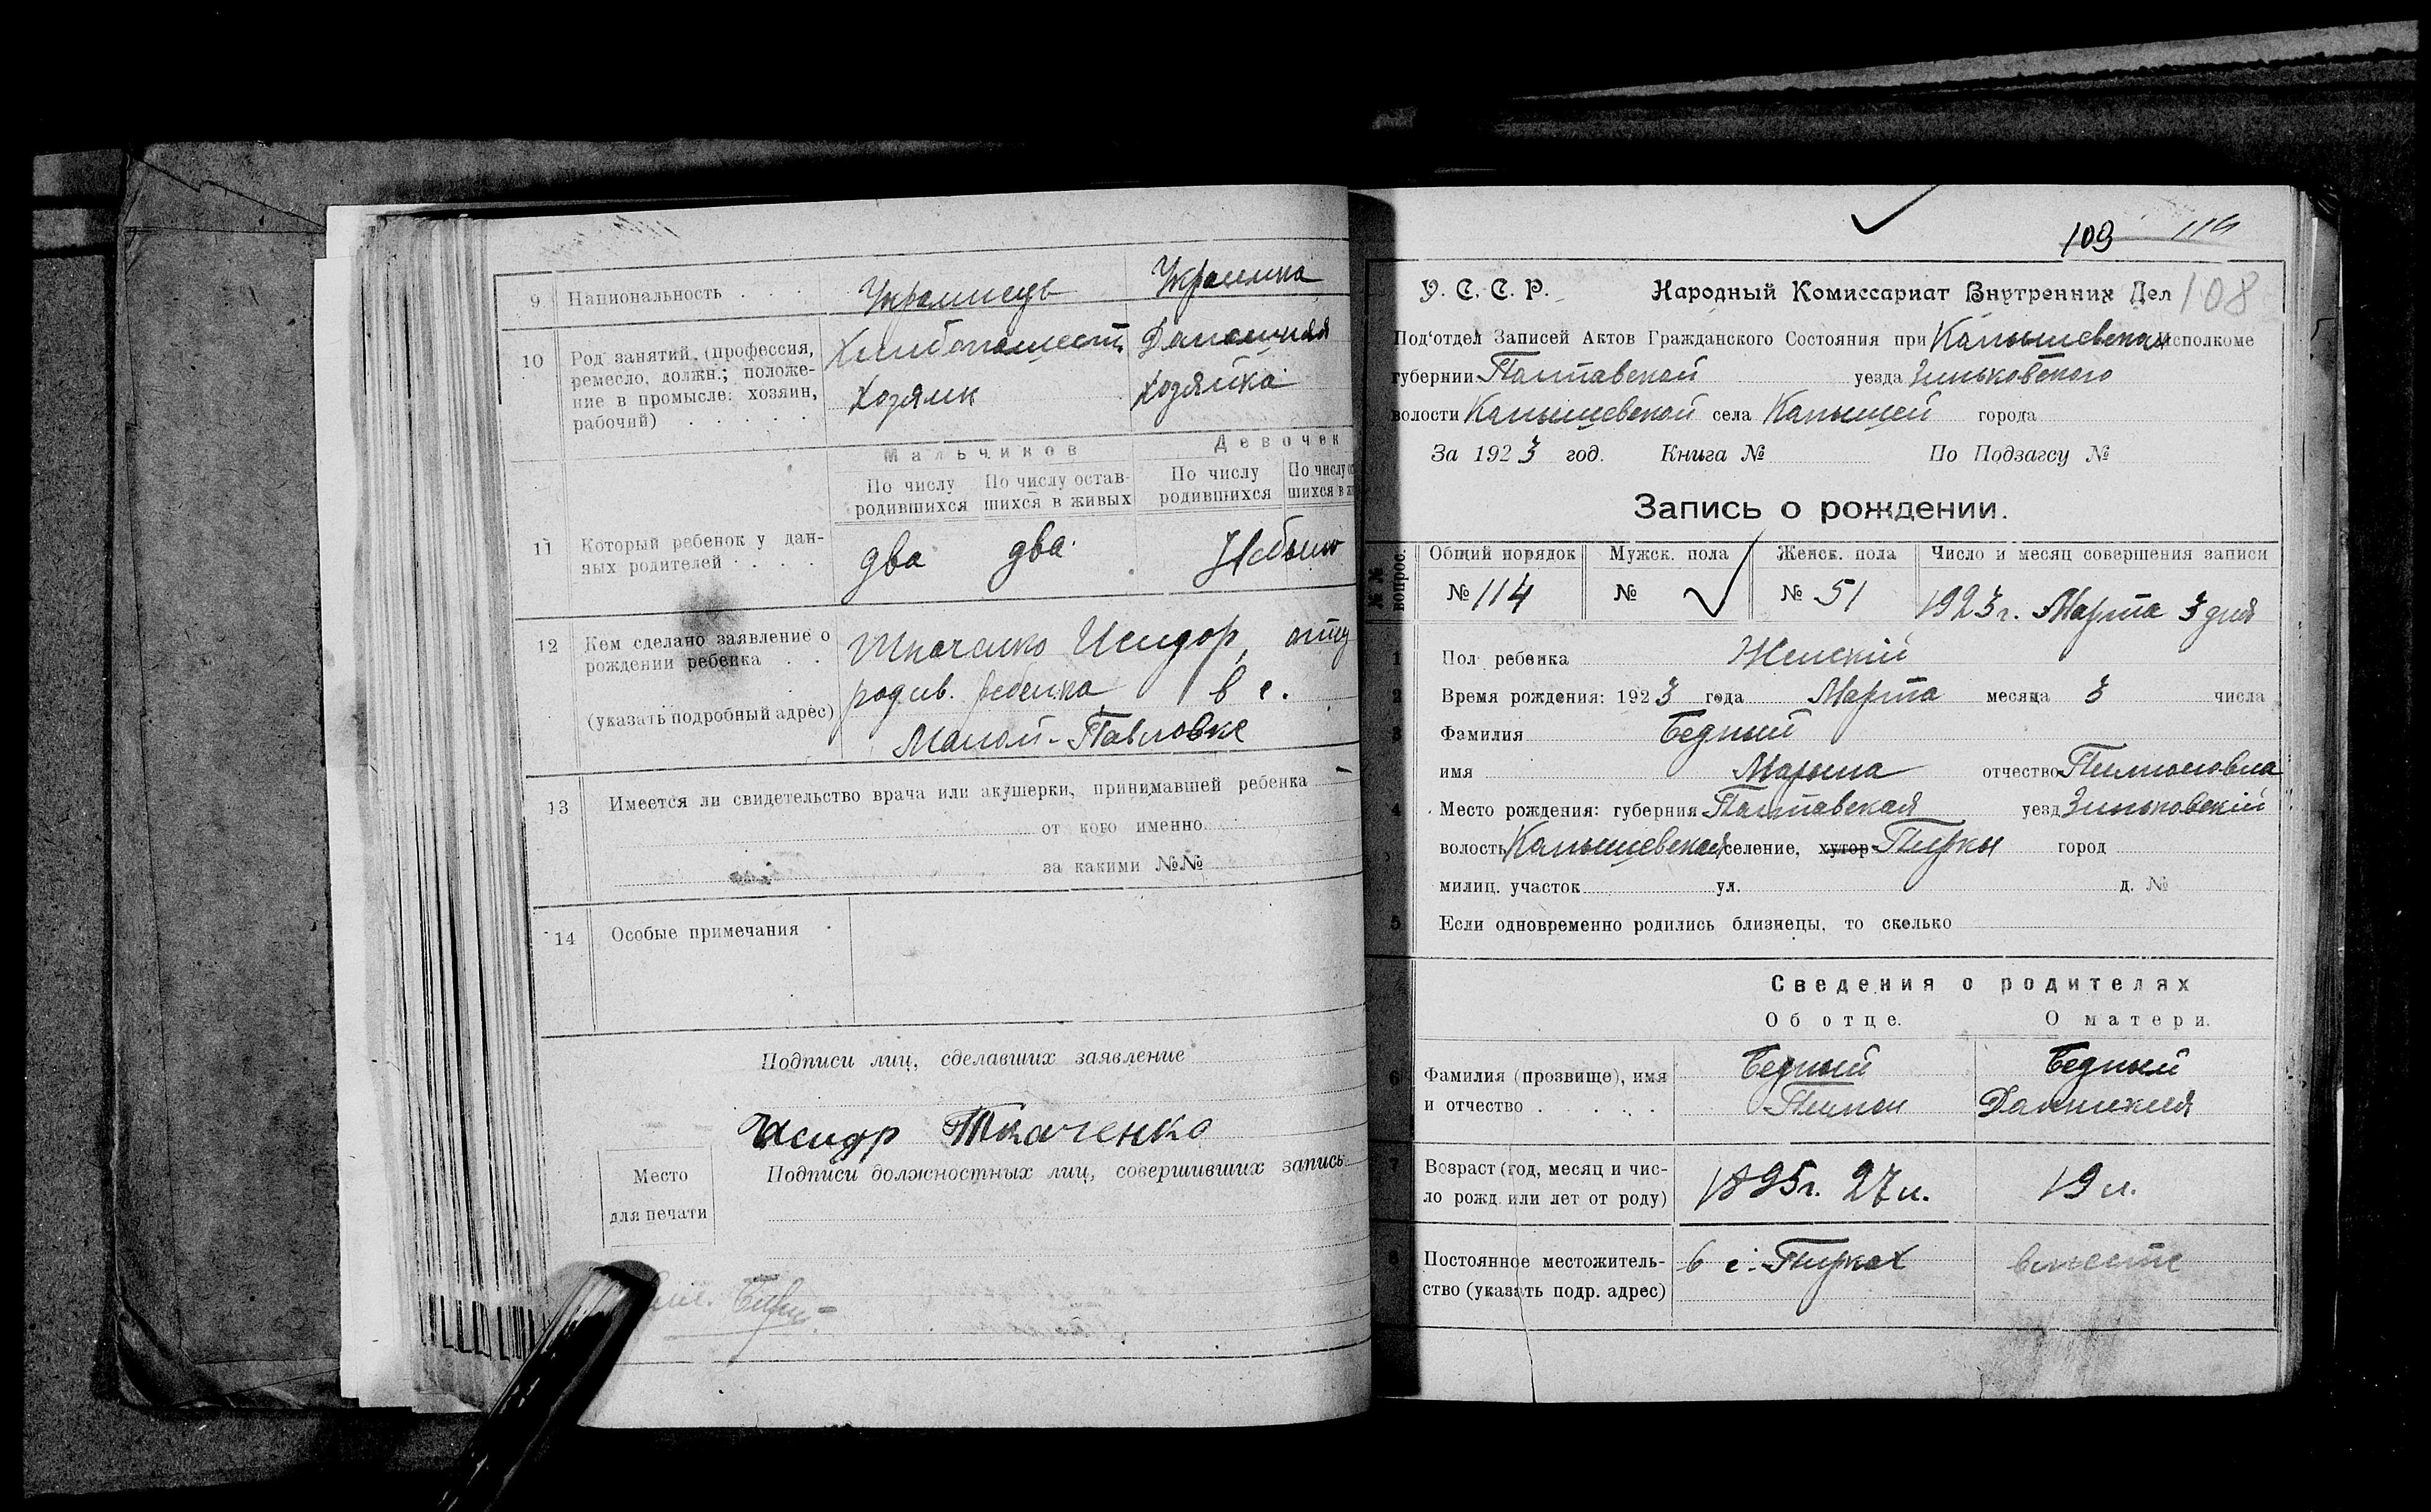 9 Национальность Украинець Украинка
10 Род занятий, (профессия, Хлебопашест. Домашняя
ремесло, должн.; положе-
ние в промысле: хозяин, Хозяин хозяйка
рабочий)
Мальчиков Девочек
По числу родившихся По числу остав-шихся в живых По числу родившихся
11 Который ребенок у дан-
ных родителей два два Небыло
12 Кем сделано заявление о Ткаченко Исидор, отец
рождении ребенка родив. ребенка в с.
(указать подробный адрес) Малой-Павловке
13 Имеется ли свидетельство врача или акушерки, принимавшей ребенка
от кого именно
за какими №№
14 Особые примечания
Подписи лиц, сделавших заявление
Исидр Ткаченко
Подписи должностных лиц, совершивших запись
Место
для печати
109 114
У. С. С. Р. Народный Комиссариат Внутренних Дел 108
Под‘отдел Записей Актов Гражданского Состояния при Исполкоме
губернии Полтавской уезда Зиньковского
волости села города
За 1923 год. Книга № По Подзагсу №
Запись о рождении.
№№ вопрос. Общий порядок Мужск. пола Женск. пола Число и месяц совершения записи
№ 114 № № 51 1923 г. Марта 3 дня
1 Пол ребенка Женскій
2 Время рождения: 1923 года Марта месяца 3 числа
3 Фамилия Бедный
имя отчество
4 Место рождения: губерния Полтавская уезд Зиньковскій
волость селение, хутор Пирки город
милиц. участок ул. д. №
5 Если одновременно родились близнецы, то сколько
Сведения о родителях
Об отце. О матери.
6 Фамилия (прозвище), имя Бедный Бедный
и отчество
7 Возраст (год, месяц и чис-
ло рожд или лет от роду) 1895г. 27 л. 19 л.
8 Постоянное местожитель- в с. Пирках вместе
ство (указать подр. адрес)